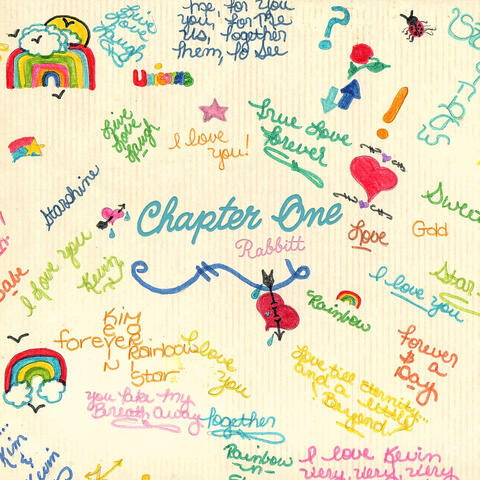 Live
love
laugh
me, for you
you, for me
Us, Together
Them, to see
?
Unicorns
Live
Love
Laugh
I love
you!
True Love
Forever
!
Starshine
Chapter One
Rabbitt
Love
Gold
Sweet
I love you
Kevin
Babe
I love you
Star
Rainbow
Kim
forever
Kevin
Rainbow
Star
I love
You
You take my
Breath away
Together
Love till Eternity...
and a little
Beyond
Forever
& a
Day
Kim
&
Kevin
Rainbow
-n-
I love Kevin
very, very, very